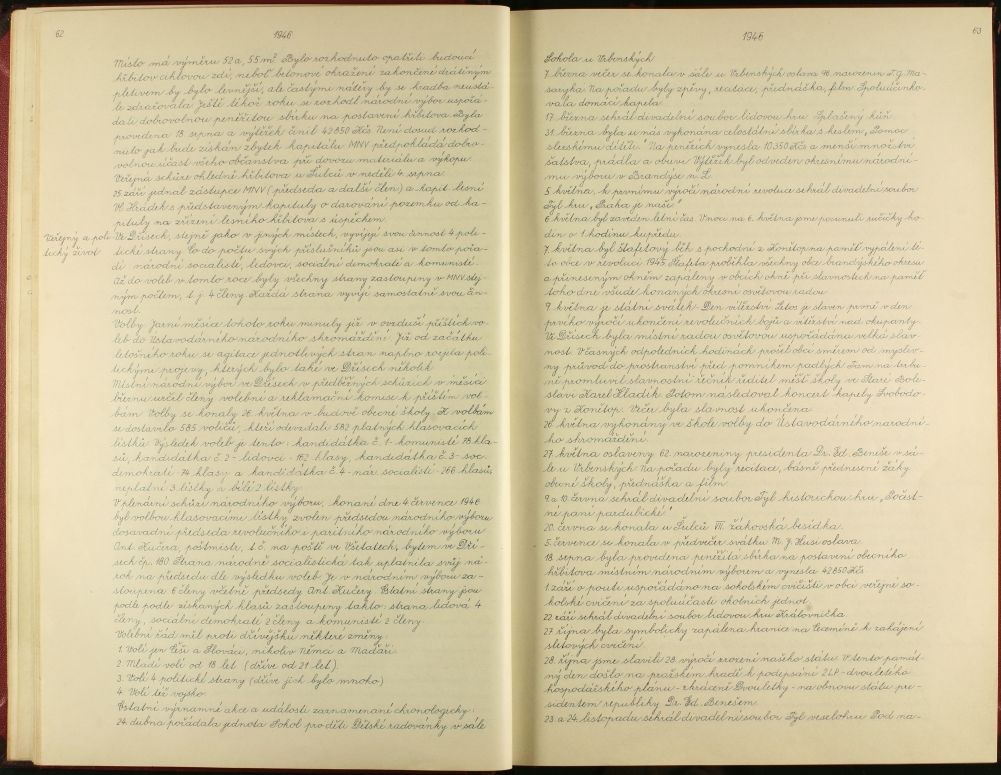 62
1946
Místo má výměru 52 a, 55 m². Bylo rozhodnuto opatřiti budoucí
hřbitov cihlovou zdí, neboť betonové ohražení zakončené drátěným
pletivem by bylo levnější, ale častými nátěry by se hradba neustá-
le zdražovala. Ještě téhož roku se rozhodl národní výbor uspořá-
dati dobrovolnou peněžitou sbírku na postavení hřbitova. Byla
provedena 18. srpna a výtěžek činil 42850 Kčs. Není dosud rozhod-
nuto jak bude získán zbytek kapitálu. MNV předpokládá dobro-
volnou účast všeho občanstva při dovozu materiálu a výkopu.
Veřejná schůze ohledně hřbitova u Šulců v neděli 4. srpna.
25. září jednal zástupce MNV (předseda a další člen) a kapit. lesní
Vl. Hrádek s představeným kapituly o darování pozemku od ka-
pituly na zřízení lesního hřbitova s úspěchem.
Veřejný a poli-
tický život
Ve Dřísech, stejně jako v jiných místech, vyvíjejí svou činnost 4 poli-
tické strany. Co do počtu svých příslušníků jsou asi v tomto pořa-
dí: národní socialisté, lidovci, sociální demokraté a komunisté.
Až do voleb v tomto roce byly všechny strany zastoupeny v MNV stej-
ným počtem, t. j. 4 členy. Každá strana vyvíjí samostatně svou čin-
nost.
Volby. Jarní měsíce tohoto roku minuly již v ovzduší příštích vo-
leb do Ústavodárného národního shromáždění. Již od začátku
letošního roku se agitace jednotlivých stran naplno rozjela poli-
tickými projevy, kterých bylo také ve Dřísech několik.
Místní národní výbor ve Dřísech v předběžných schůzích v měsíci
březnu určil členy volební a reklamační komise k příštím vol-
bám. Volby se konaly 26. května v budově obecné školy. K volbám
se dostavilo 585 voličů, kteří odevzdali 582 platných hlasovacích
lístků. Výsledek voleb je tento: kandidátka č. 1 - komunisté 78 hla-
sů, kandidátka č. 2 - lidovci - 162 hlasy, kandidátka č. 3 - soc.
demokraté 74 hlasy a kandidátka č. 4 - nár. socialisté - 266 hlasů,
neplatní 3 lístky a bílé 2 lístky.
V plenární schůzi národního výboru, konané dne 4. července 1946
byl volbou hlasovacími lístky zvolen předsedou národního výboru
dosavadní předseda revolučního i paritního národního výboru
Ant. Kučera, poštmistr, t. č. na poště ve Všetatech, bytem ve Dří-
sech čp. 180. Strana národně socialistická tak uplatnila svůj ná-
rok na předsedu dle výsledku voleb. Je v národním výboru za-
stoupena 6 členy včetně předsedy Ant. Kučery. Ostatní strany jsou
podle podle získaných hlasů zastoupeny takto: strana lidová 4
členy, sociální demokraté 2 členy a komunisté 2 členy.
Volební řád měl proti dřívějšku některé změny:
1. Volí jen Češi a Slováci, nikoliv Němci a Maďaři.
2. Mladí volí od 18 let (dříve od 21 let).
3. Volí 4 politické strany (dříve jich bylo mnoho).
4. Volí též vojsko.
Ostatní významné akce a události zaznamenané chronologicky:
24. dubna pořádala jednota Sokol pro děti Dětské radovánky v sále
63
1946
Sokola u Vrbenských.
7. března večer se konala v sále u Vrbenských oslava 96. narozenin T. G. Ma-
saryka. Na pořadu byly zpěvy, recitace, přednáška, film. Spoluúčinko-
vala domácí kapela.
17. března sehrál divadelní soubor lidovou hru „Splašený kůň“.
31. března byla u nás vykonána celostátní sbírka s heslem „Pomoc
slezskému dítěti“. Na penězích vynesla 10350 Kčs a menší množství
šatstva, prádla a obuvi. Výtěžek byl odveden okresnímu národní-
mu výboru v Brandýse n. L.
5. května, k prvnímu výročí národní revoluce sehrál divadelní soubor
Tyl hru „Praha je naše“.
6. května byl zaveden letní čas. V noci na 6. května jsme posunuli ručičky ho-
din o 1. hodinu kupředu.
7. května byl štafetový běh s pochodní z Konětop na paměť vypálení té-
to obce v revoluci 1945. Štafeta proběhla všechny obce brandýského okresu
a přineseným ohněm zapáleny v obcích ohně při slavnostech na paměť
toho dne všude konaných okresní osvětovou radou.
9. května je státní svátek - Den vítězství. Letos je slaven prvně v den
prvého výročí ukončení revolučních bojů a vítězství nad okupanty.
Ve Dřísech byla místní radou osvětovou uspořádána velká slav-
nost. V časných odpoledních hodinách prošel obcí směrem od myslív-
ny průvod do prostranství před pomníkem padlých. Tam na tribu-
ně promluvil slavnostní řečník ředitel měšť. školy ve Staré Bole-
slavi Karel Hladík. Potom následoval koncert kapely Svobodo-
vy z Konětop. Večer byla slavnost ukončena.
26. května vykonány ve škole volby do Ústavodárného národní-
ho shromáždění.
27. května oslaveny 62. narozeniny presidenta Dr. Ed. Beneše v sá-
le u Vrbenských. Na pořadu byly recitace, básně přednesené žáky
obecné školy, přednáška a film.
9. a 10. června sehrál divadelní soubor Tyl historickou hru „Počest-
né paní pardubické“.
20. června se konala u Šulců VII. žákovská besídka.
5. července se konala v předvečer svátku M. J. Husi oslava.
18. srpna byla provedena peněžitá sbírka na postavení obecního
hřbitova místním národním výborem a vynesla 42850 Kčs.
1. září o pouti uspořádáno na sokolském cvičišti v obci veřejné so-
kolské cvičení za spoluúčasti okolních jednot.
22. září sehrál divadelní soubor lidovou hru Královnička.
27. října byla symbolicky zapálena hranice na Cecemíně k zahájení
sletových cvičení.
28. října jsme slavili 28. výročí zrození našeho státu. V tento památ-
ný den došlo na pražském hradě k podepsání 2LP - dvouletého
hospodářského plánu - zkráceně Dvouletky - na obnovu státu pre-
sidentem republiky Dr. Ed. Benešem.
23. a 24. listopadu sehrál divadelní soubor Tyl veselohru Pod na-